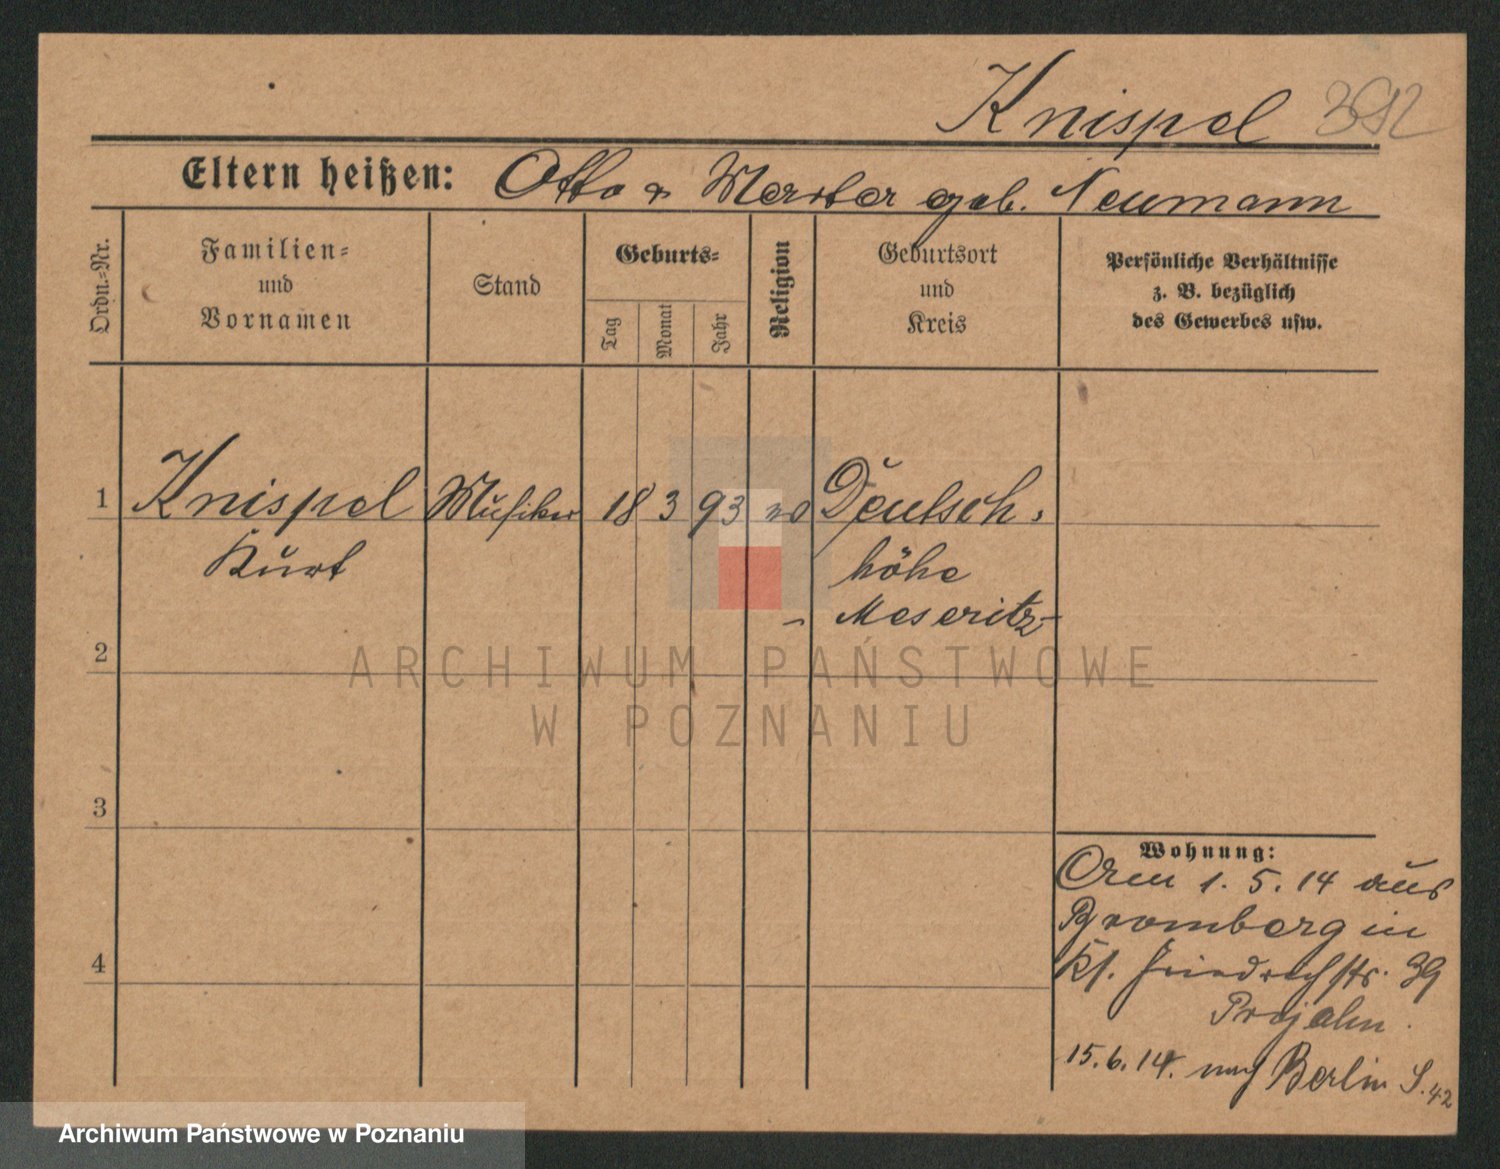 Knispel 392
Eltern heißen: Otto & Martha geb. Neumann
Ordn.-Nr.
Familien-
und
Vornamen
Stand
Geburts-
Tag
Monat
Jahr
Religion
Geburtsort
und
Kreis
Persönliche Verhältnisse
z. B. bezüglich
des Gewerbes usw.
1 Knispel Musiker 18 3 93 Deutsch-
Kurt höhe
Meseritz
2
ARCHIWUM PAŃSTWOWE
W POZNANIU
3
4
Wohnung:
Am 1. 5. 14 aus
Bromberg in
Friedrichstr. 39
15. 6. 14. nach Berlin S. 42
Archiwum Państwowe w Poznaniu